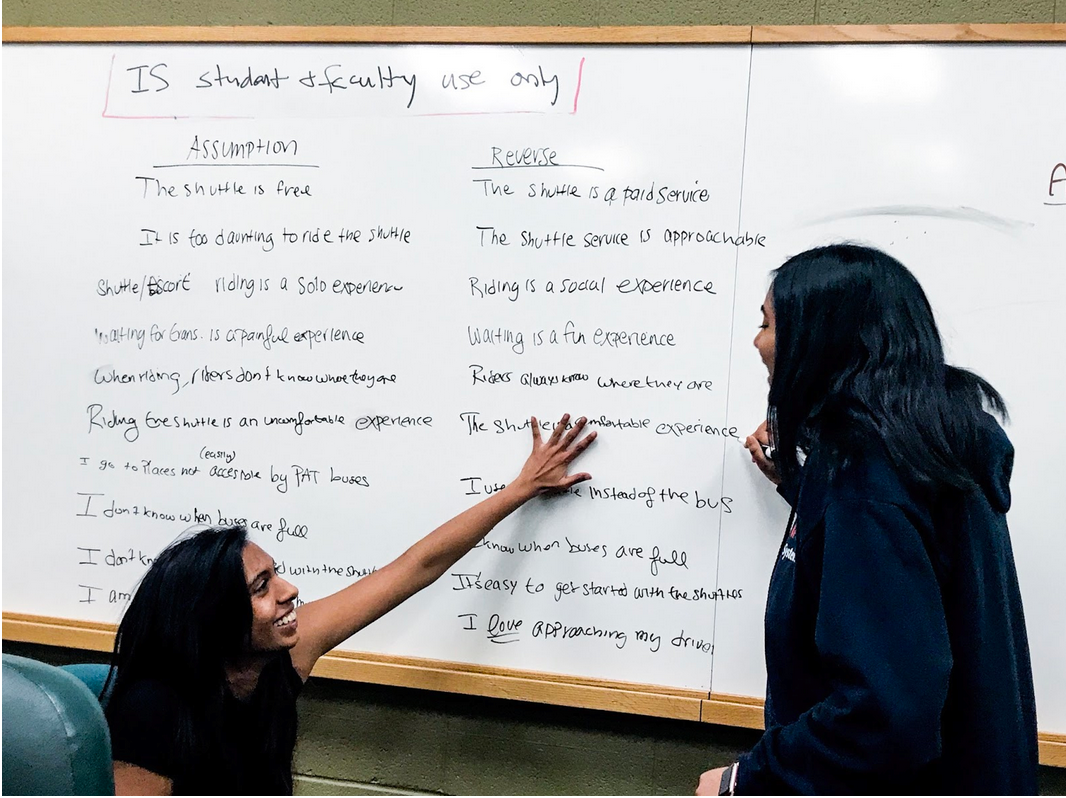 IS student & faculty use only
Assumption
Reverse
The shuttle is free
The shuttle is a paid service
It is too daunting to ride the shuttle
The shuttle service is approachable
Shuttle/Escort riding is a solo experience
Riding is a social experience
Waiting for trans. is a painful experience
Waiting is a fun experience
When riding, riders don't know where they are
Riders always know where they are
Riding the shuttle is an uncomfortable experience
The experience
(easily)
I go to places not accesible by PAT buses
I use instead of the bus
I don't know when buses are full
know when buses are full
I don't with the
It's easy to get started with the shuttles
I am
I love approaching my driver
A